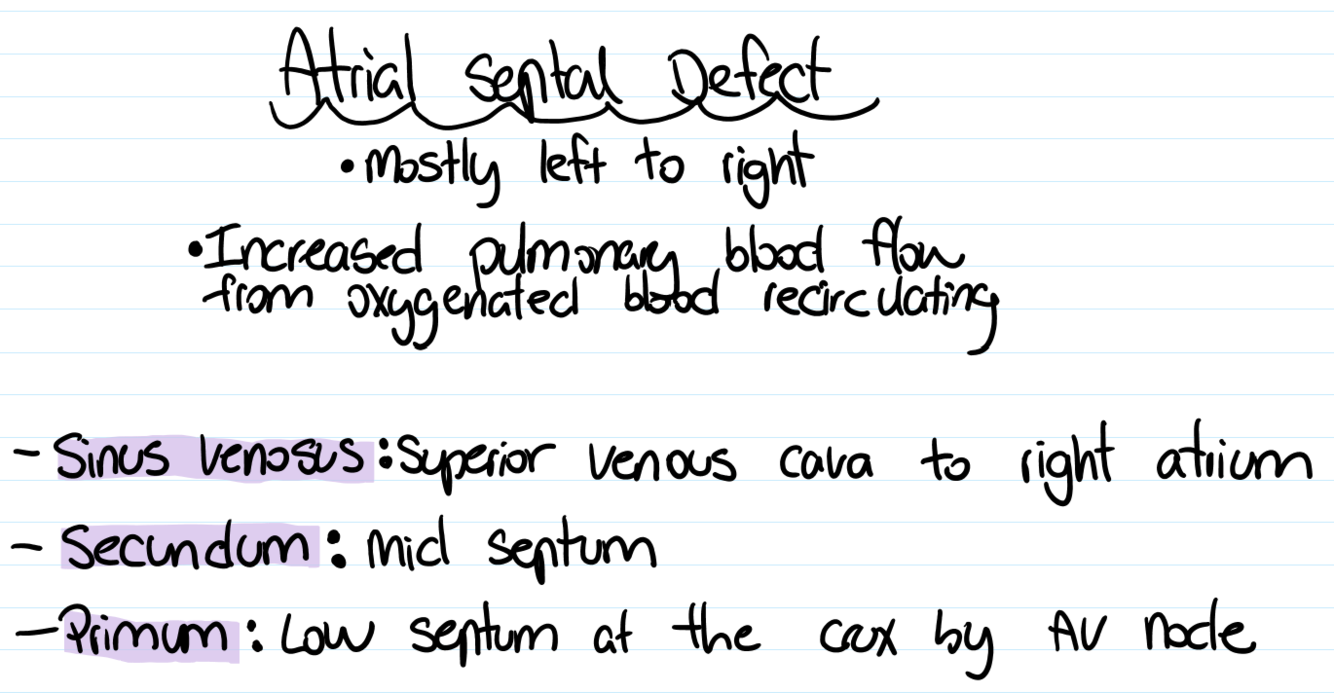 Atrial Septal Defect
• Mostly left to right
• Increased pulmonary blood flow
from oxygenated blood recirculating
- Sinus Venosus: Superior venous cava to right atrium
- Secundum: Mid septum
- Primum: Low septum at the crux by AV node